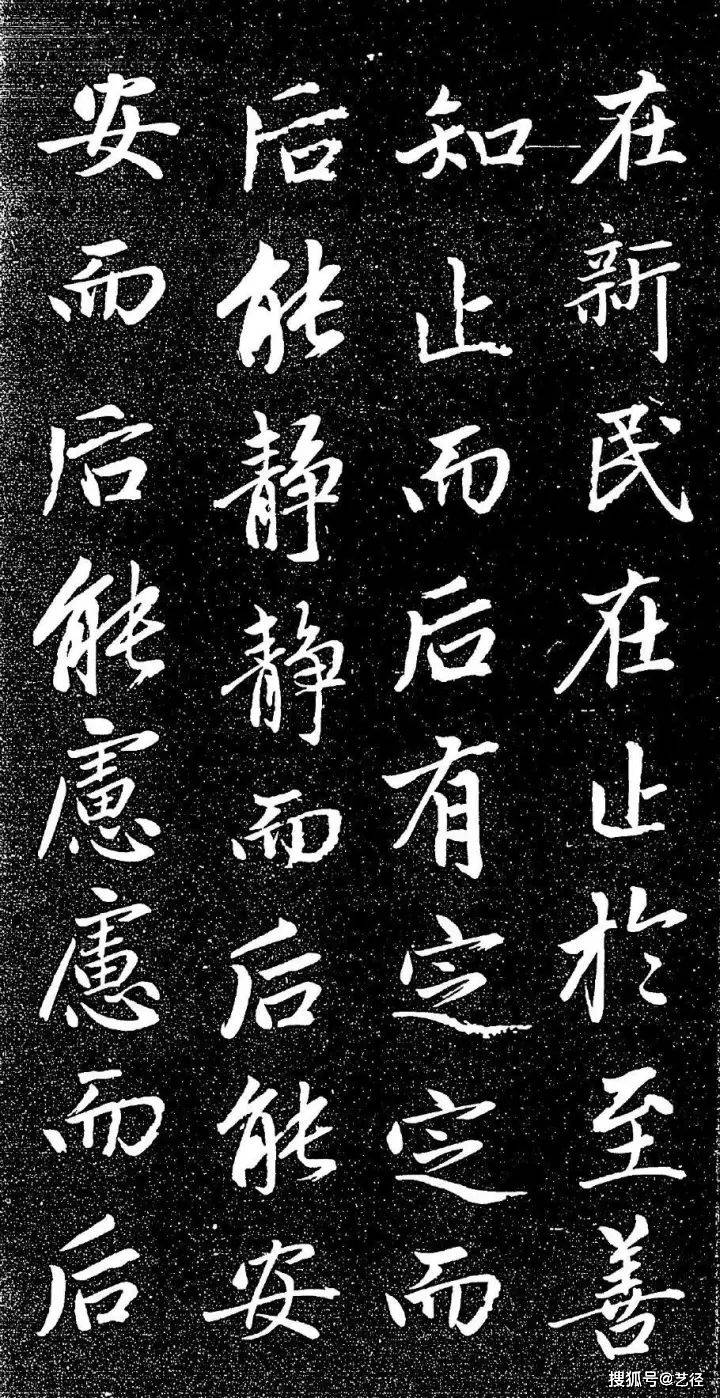 在新民在止於至善
知止而后有定定而
后能静静而后能安
安而后能慮慮而后
搜狐号@艺径